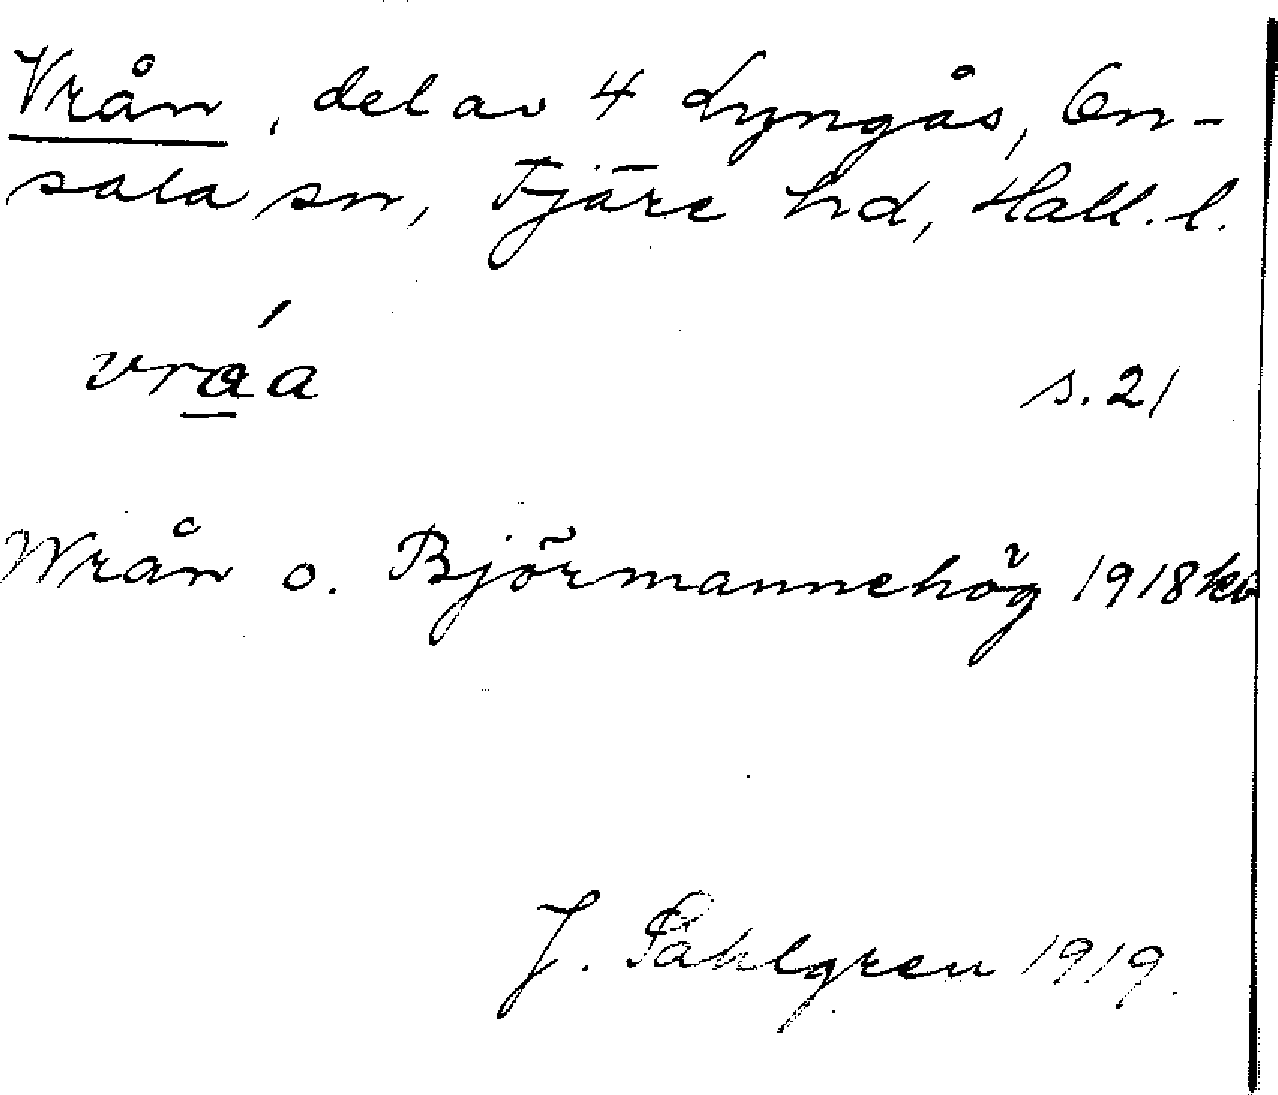 Vrån, del av 4 Lyngås, On-
sala sn, Fjäre hd, Hall. l.
vrá̲a s. 21
Wrån o. Björmannehög 1918 kb
J. Sahlgren 1919.